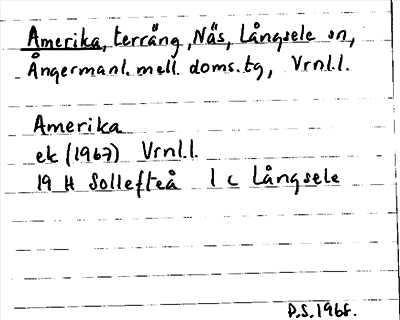 Amerika, terräng, Näs, Långsele sn,
Ångermanl. mell. doms. tg, Vrnl.l.
Amerika
ek (1967) Vrnl.l.
19 H Sollefteå 1 c Långsele
P.S. 1968.